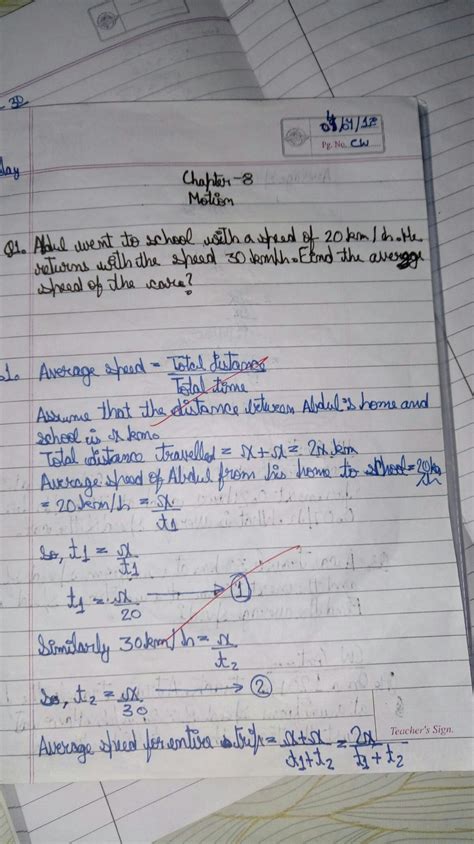 Pg. No. CW
day
Chapter-8
Motion
Q1. Abdul went to school with a speed of 20 km/h. He
returns with the speed 30 km/h. Find the average
speed of the care?
Average speed = Total distance
Total time
Assume that the distance between Abdul's home and
school is x km.
Total distance travelled = x + x = 2x km
Average speed of Abdul from his home to school = 20 km/h
= 20 km/h = x/t1
So, t1 = x/t1
t1 = x/20 → ①
Similarly 30 km/h = x/t2
So, t2 = x/30 → ②
Teacher's Sign.
Average speed for entire trip = x+x/t1+t2 = 2x/t1+t2